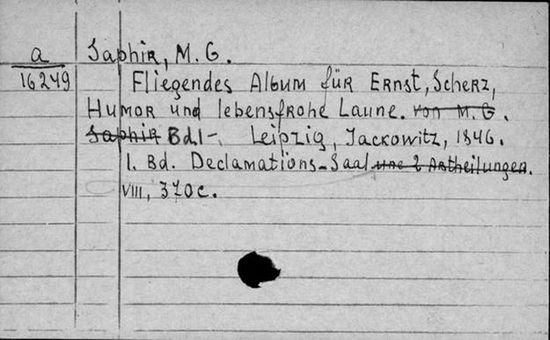 a
16249
Saphir, M. G.
Fliegendes Album für Ernst, Scherz,
Humor und lebensfrohe Laune. von M. G.
Saphir Bd. 1-. Leipzig, Jackowitz, 1846.
1. Bd. Declamations-Saal. une 2 Abtheilungen.
VIII, 370 c.